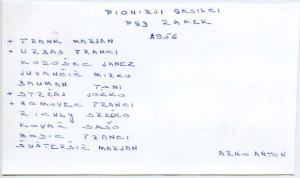 PIONIRJI GASILCI
PGD RAKEK
1956
+ FRANK MARJAN
+ URBAS FRANCI
KOROŠEC JANEZ
JUVANČIČ MIRKO
BAUMAN TONI
+ STRŽAJ JOŽKO
+ HOMOVEC FRANCI
RICHLY SREČKO
KOVAČ SAŠO
MODIC FRANCI
ŠUŠTERŠIČ MARJAN
ARKO ANTON